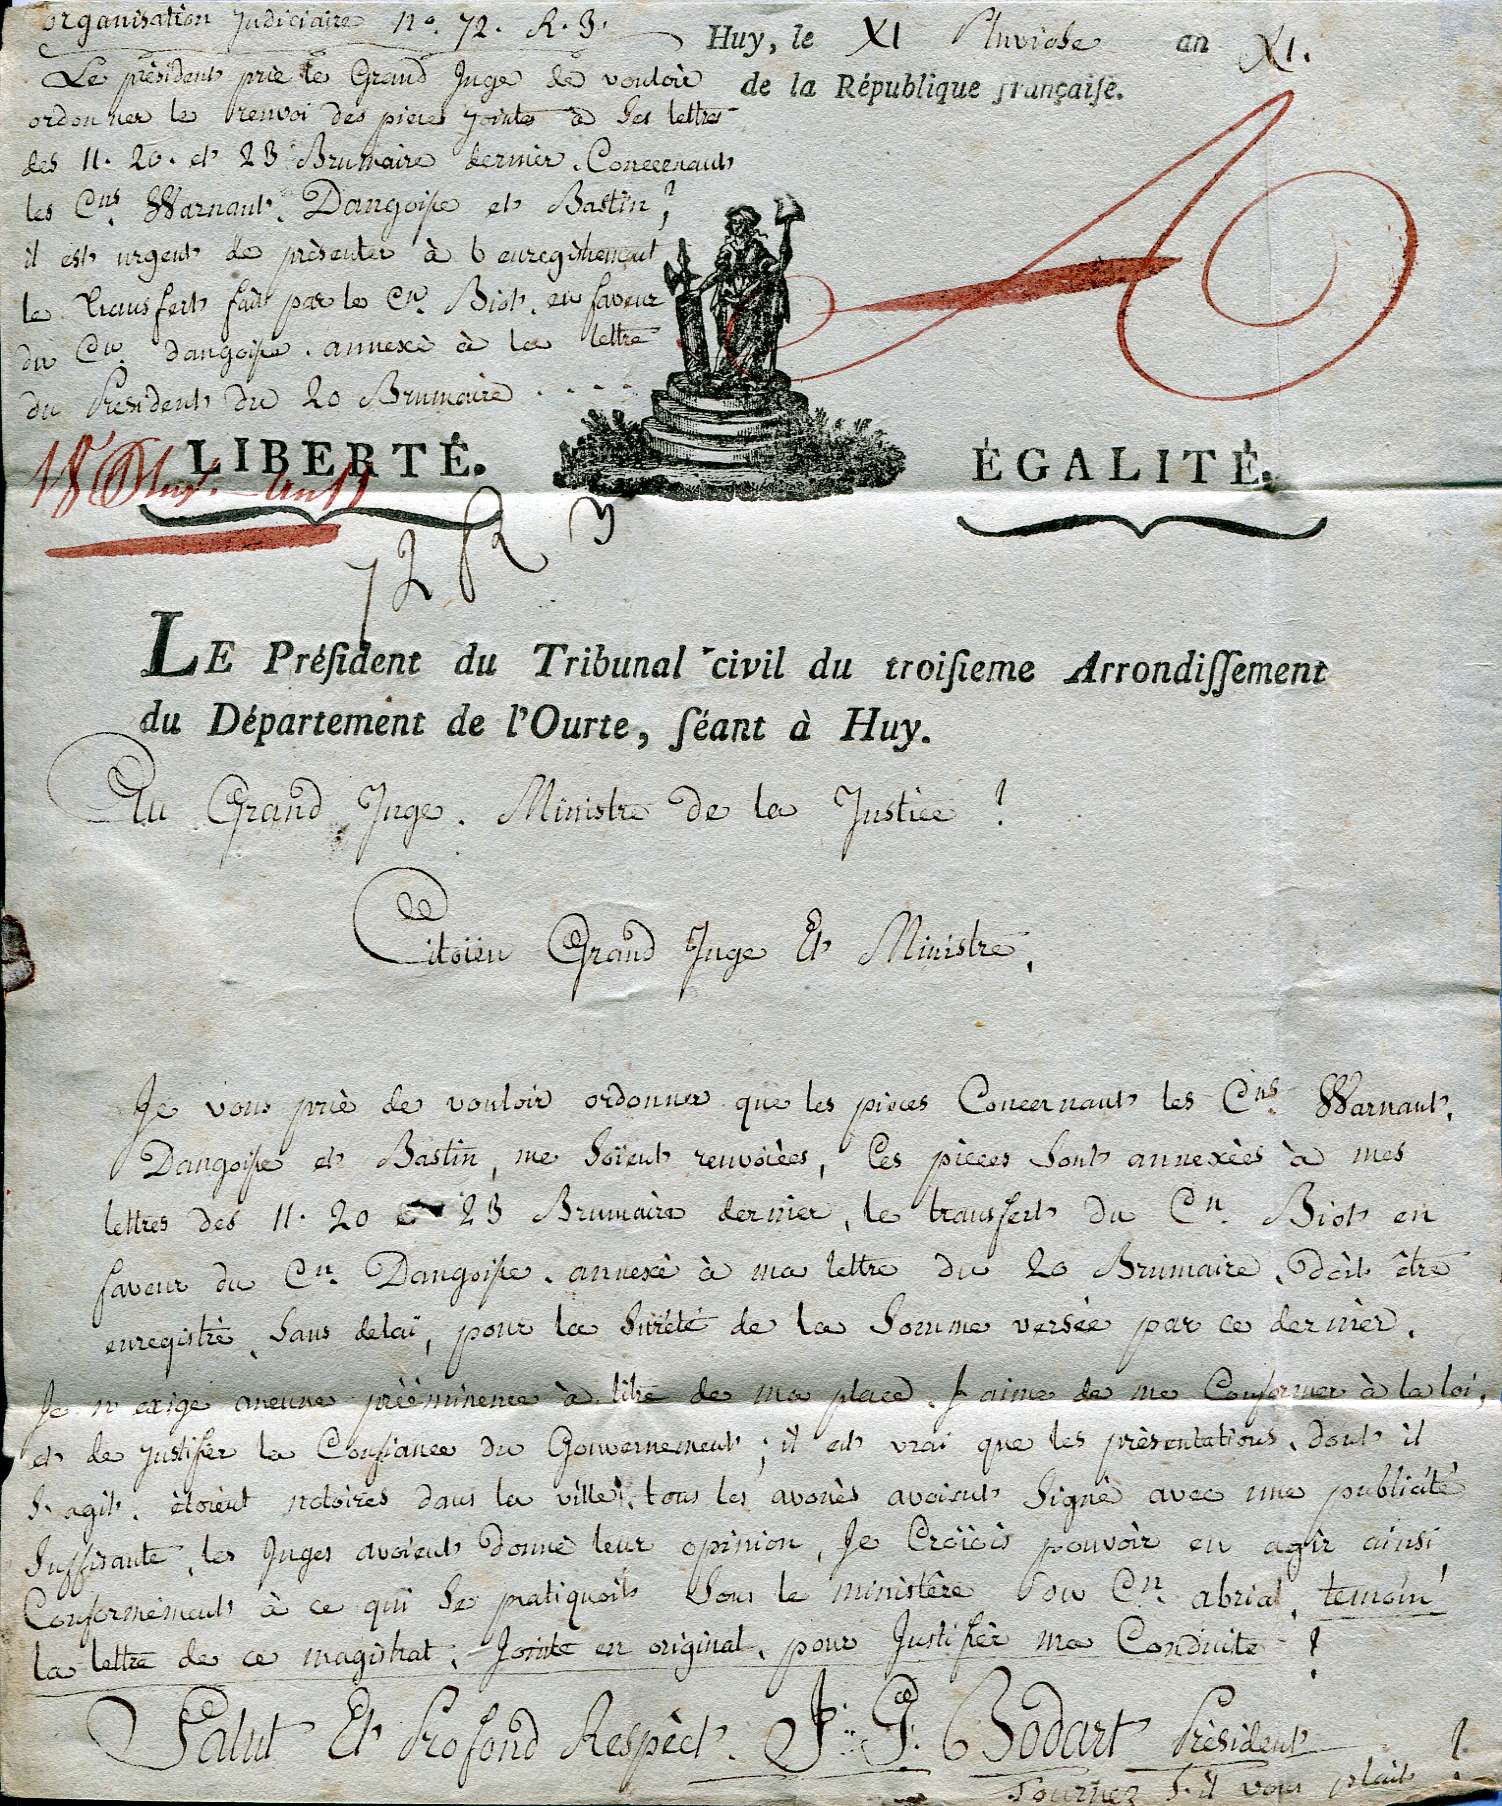 organisation Judiciaire n.o 72. R. 3.
Le président prie le Grand Juge de vouloir
ordonner le renvoi des pieces jointes à ses lettres
des 11. 20. et 23 Brumaire dernier. Concernant
les C.ns Warnant, Dangoisse et Bastin,
il est urgent de présenter à l'enregistrement
le transfert fait par le C.n Biot. en faveur
du C.n dangoisse. annexé à la lettre
du President du 20 Brumaire . . . .
Huy, le XI Pluviose an XI.
de la République françaiſe.
LIBERTÉ.
ÉGALITÉ.
18 Pluv. an 11
72 R 3
LE Préſident du Tribunal civil du troiſieme Arrondiſſement
du Département de l'Ourte, ſéant à Huy.
Au Grand Juge. Ministre de la Justice !
Citoïen Grand Juge Et Ministre,
Je vous prie de vouloir ordonner que les pieces Concernant les C.ns Warnant,
Dangoisse et Bastin, me soïent renvoïèes, Ces pièces sont annexèes à mes
lettres des 11. 20 et 23 Brumaire dernier, le transfert du C.n Biot en
faveur du C.n Dangoisse. annexé à ma lettre du 20 Brumaire, doit être
enregistrè, sans delaï, pour la sureté de la somme versée par ce dernier.
Je n'exige aucune prééminence à titre de ma place. J'aime de me Conformer à la loi,
et de justifier la Confiance du Gouvernement ; il est vrai que les présentations, dont il
s'agit, étoient notoires dans la ville, tous les avoués avoient signé avec une publicité
suffisante, les Juges avoient donné leur opinion, Je Croïois pouvoir en agir ainsi
Conformément à ce qui se pratiquoit sous le ministère du C.n abrial, temoin
la lettre de ce magistrat, Jointe en original, pour Justifier ma Conduite !
Salut Et Profond Respèct. J. G. Bodart Prèsident
Tournez s'il vous plait !